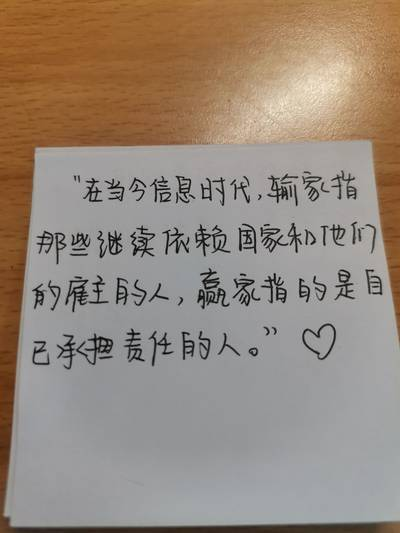 "在当今信息时代，输家指
那些继续依赖国家和他们
的雇主的人，赢家指的是自
己承担责任的人。" ♡